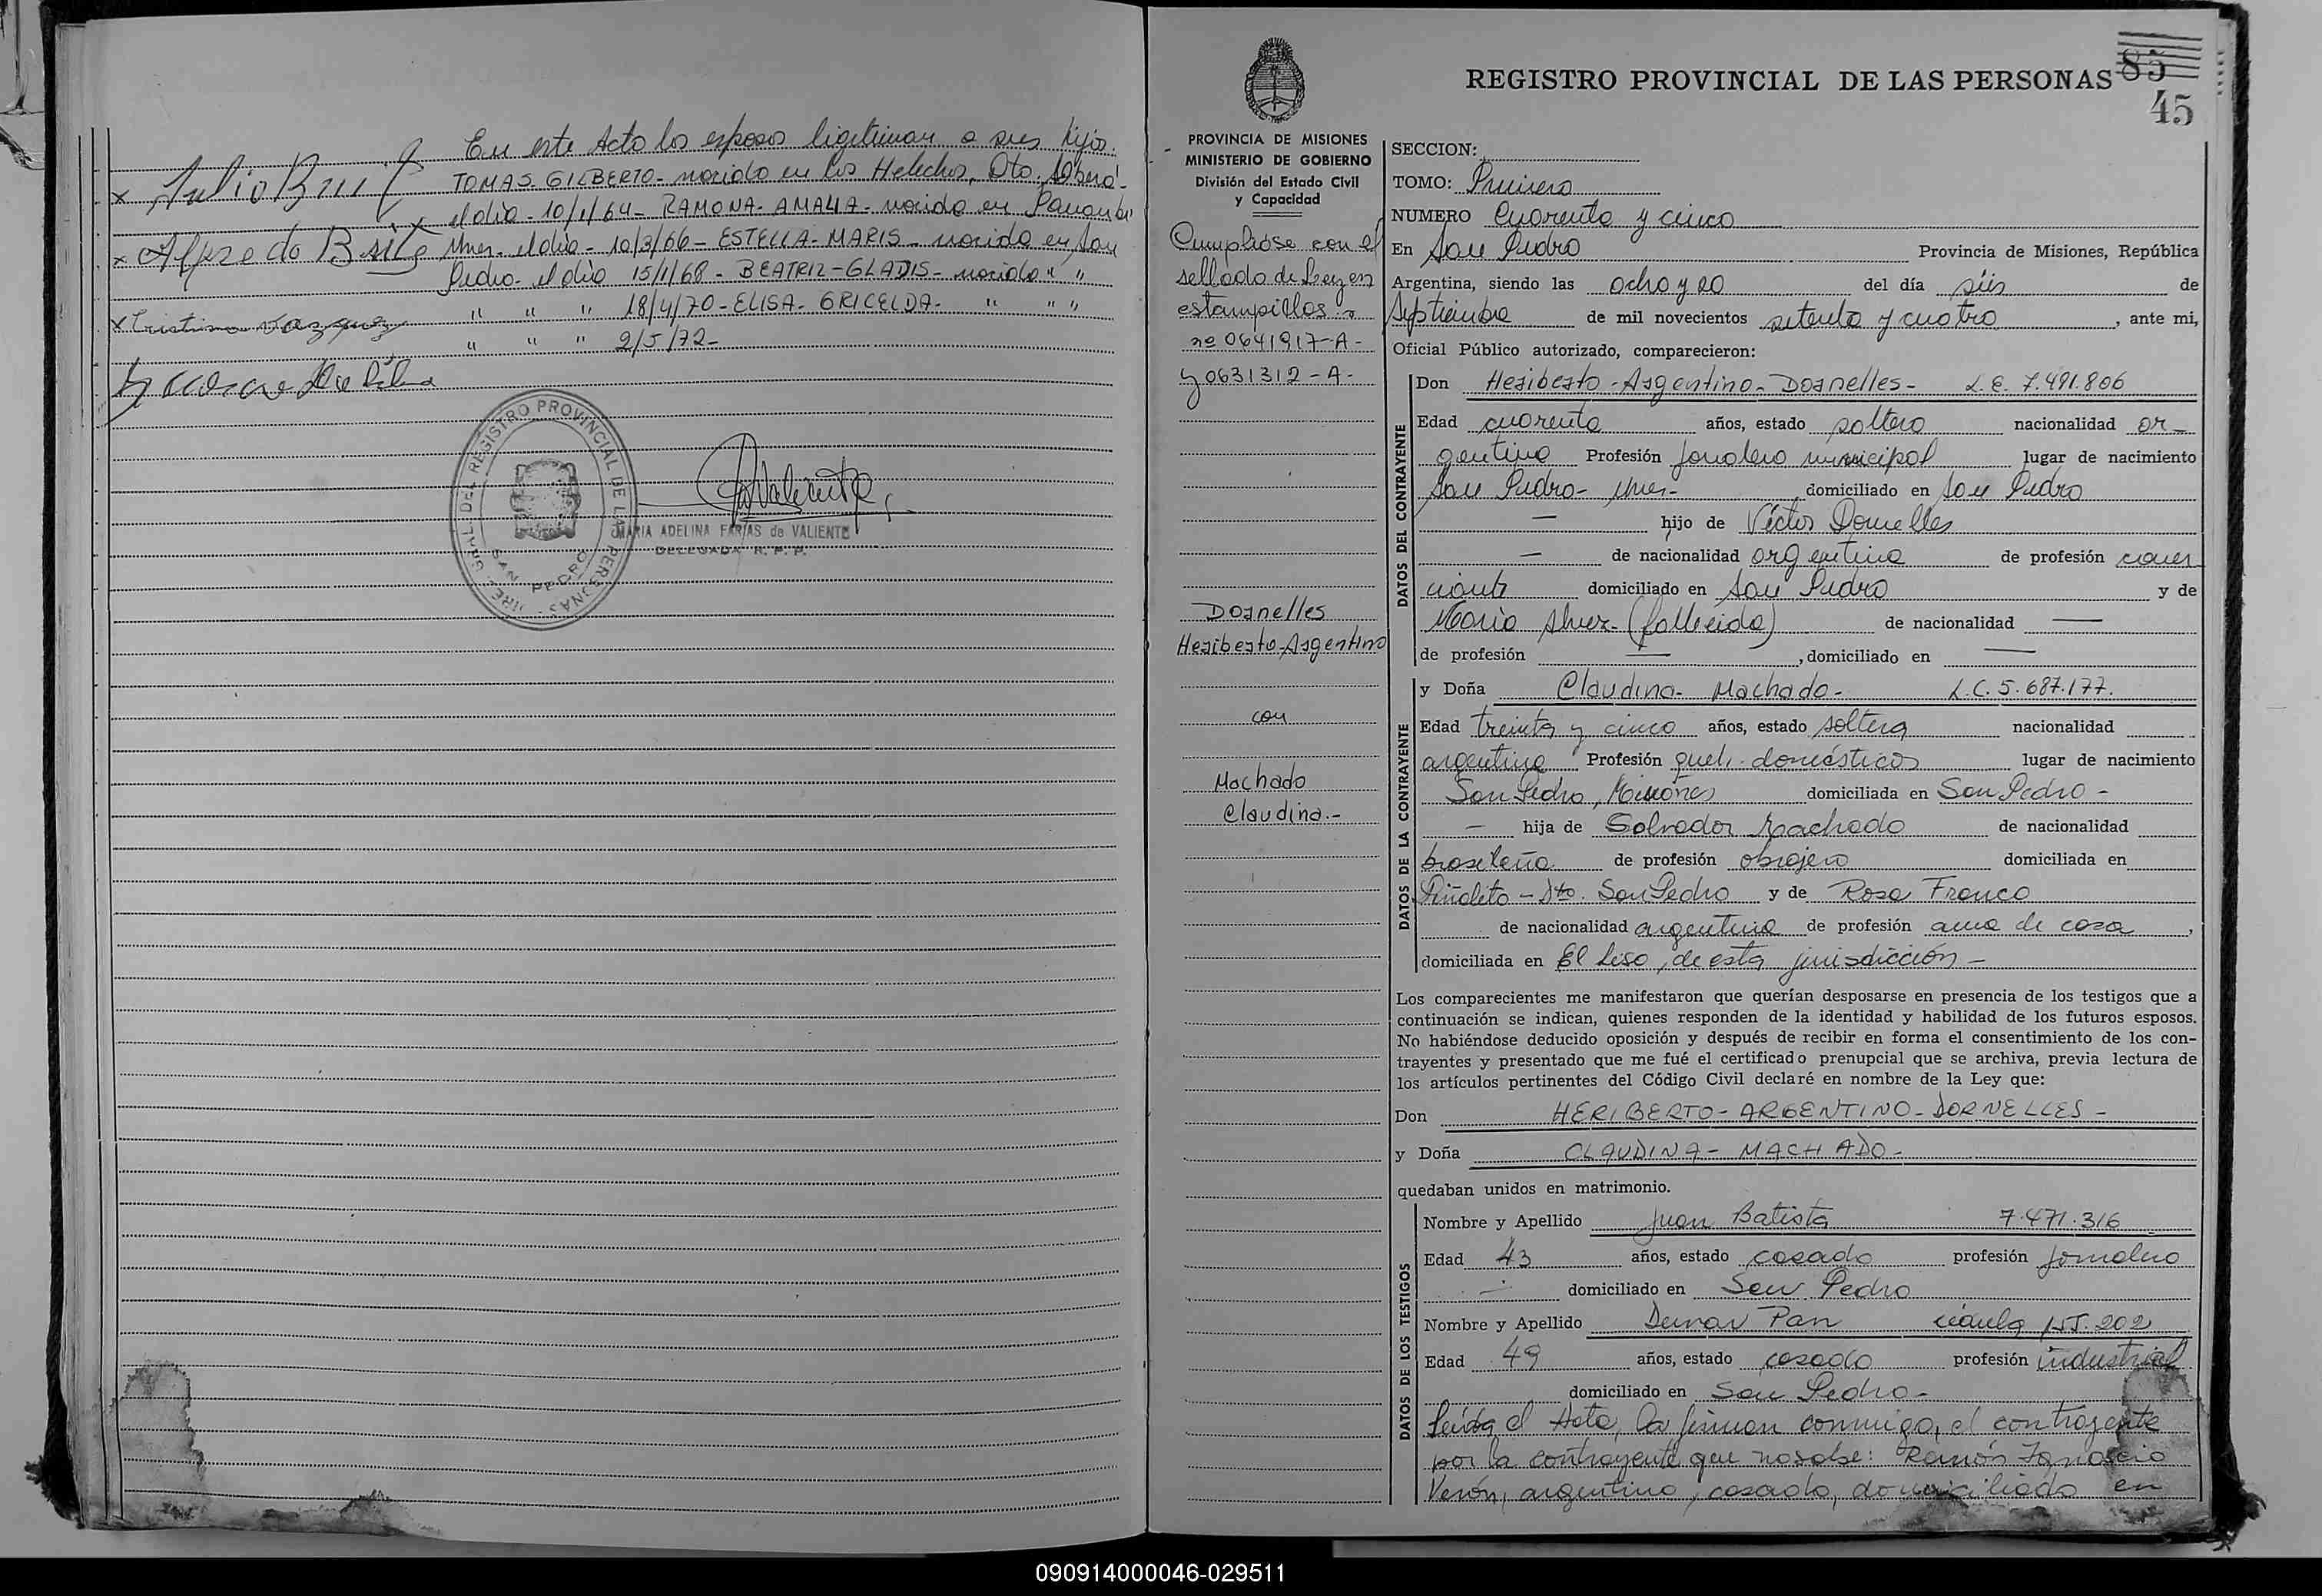 En este Acto los esposos ligitiman a sus hijos:
TOMAS GILBERTO - nacido en Los Helechos, Dto. Oberá -
el día - 10/1/64 - RAMONA - AMALIA - nacida en Panambí
Mnes. el día - 10/3/66 - ESTELLA - MARIS - nacida en San
Pedro el día 15/1/68 - BEATRIZ - GLADIS - nacida " "
" " " 18/4/70 - ELISA - GRICELDA - " " "
" " " 2/5/72 -
x Julio
x Alfredo
x Cristina Vazquez
DIRE. GRAL. DEL REGISTRO PROVINCIAL DE LAS PERSONAS
SAN PEDRO
MARIA ADELINA FARIAS de VALIENTE
DELEGADA R. P. P.
REGISTRO PROVINCIAL DE LAS PERSONAS
85
45
PROVINCIA DE MISIONES
MINISTERIO DE GOBIERNO
División del Estado Civil
y Capacidad
Cumplióse con el
sellado de Ley en
estampillas
nº 0641917-A-
y 0631312-A-
Dornelles
Heriberto-Argentino
con
Machado
Claudina.-
SECCION:
TOMO: Primero
NUMERO Cuarenta y cinco
En San Pedro Provincia de Misiones, República
Argentina, siendo las ocho y 20 del día séis de
Septiembre de mil novecientos setenta y cuatro, ante mi,
Oficial Público autorizado, comparecieron:
DATOS DEL CONTRAYENTE
Don Heriberto-Argentino-Dornelles- L.E. 7.491.806
Edad cuarenta años, estado soltero nacionalidad ar-
gentina Profesión Jornalero municipal lugar de nacimiento
San Pedro - Mnes- domiciliado en San Pedro
— hijo de Víctor Dornelles
— de nacionalidad argentina de profesión comer
ciante domiciliado en San Pedro y de
María Alvez - (fallecida) de nacionalidad —
de profesión —, domiciliado en —
DATOS DE LA CONTRAYENTE
y Doña Claudina- Machado- L.C. 5.687.177.
Edad treinta y cinco años, estado soltera nacionalidad
argentina Profesión queh. domésticos lugar de nacimiento
San Pedro, Misiones domiciliada en San Pedro -
— hija de Salvador Machado de nacionalidad
brasileña de profesión obrajero domiciliada en
Piñalito - Dto. San Pedro y de Rosa Franco
de nacionalidad argentina de profesión ama de casa,
domiciliada en El Liso, de esta jurisdicción -
Los comparecientes me manifestaron que querían desposarse en presencia de los testigos que a
continuación se indican, quienes responden de la identidad y habilidad de los futuros esposos.
No habiéndose deducido oposición y después de recibir en forma el consentimiento de los con-
trayentes y presentado que me fué el certificado prenupcial que se archiva, previa lectura de
los artículos pertinentes del Código Civil declaré en nombre de la Ley que:
Don HERIBERTO-ARGENTINO-DORNELLES-
y Doña CLAUDINA- MACHADO-
quedaban unidos en matrimonio.
DATOS DE LOS TESTIGOS
Nombre y Apellido Juan Batista 7.471.316
Edad 43 años, estado casado profesión Jornalero
— domiciliado en San Pedro
Nombre y Apellido Pan 202
Edad 49 años, estado casado profesión industrial
domiciliado en San Pedro-
Leída el Acta, la firman conmigo, el contrayente
por la contrayente que no sabe: Ramón Ignacio
Verón, argentino, casado, domiciliado en
090914000046-029511